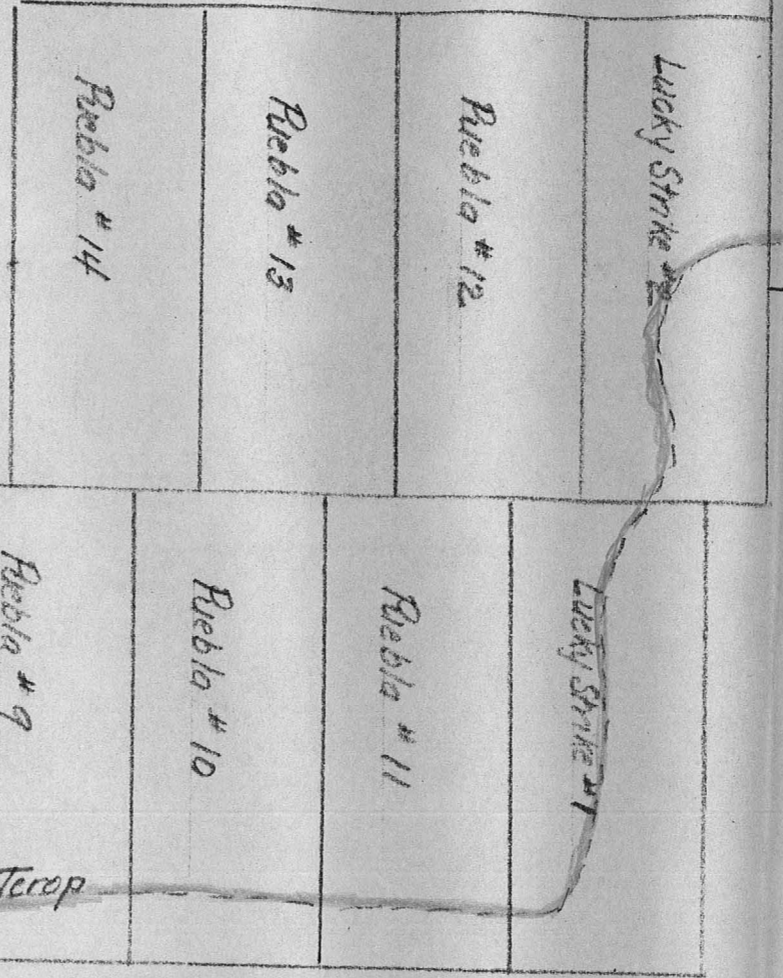 Puebla # 14
Puebla # 13
Puebla # 12
Lucky Strike #2
Puebla # 9
Puebla # 10
Puebla # 11
Lucky Strike #1
Terop